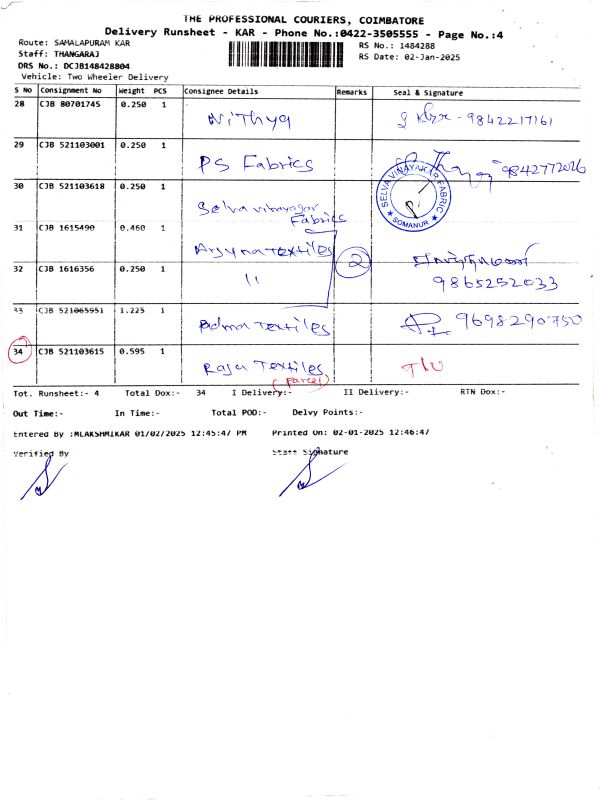 THE PROFESSIONAL COURIERS, COIMBATORE
Delivery Runsheet - KAR - Phone No.:0422-3505555 - Page No.:4
Route: SAMALAPURAM KAR
RS No.: 1484288
Staff: THANGARAJ
RS Date: 02-Jan-2025
DRS No.: DCJB148428804
Vehicle: Two Wheeler Delivery
S No Consignment No Weight PCS Consignee Details Remarks Seal & Signature
28 CJB 80701745 0.250 1 Nithya 9842217161
29 CJB 521103001 0.250 1 PS Fabrics 9842772026
30 CJB 521103618 0.250 1 Selva vinayagar Fabrics
SELVA VINAYAKAR FABRIC
★ SOMANUR ★
31 CJB 1615490 0.460 1 Arjuna textiles
2
32 CJB 1616356 0.250 1 11 9865252033
33 CJB 521065951 1.225 1 Padma Textiles 9698290750
34 CJB 521103615 0.595 1 Raja Textiles
(Parcel)
Tot. Runsheet:- 4 Total Dox:- 34 I Delivery:- II Delivery:- RTN Dox:-
Out Time:- In Time:- Total POD:- Delvy Points:-
Entered By :MLAKSHMIKAR 01/02/2025 12:45:47 PM Printed On: 02-01-2025 12:46:47
Verified By Staff Signature